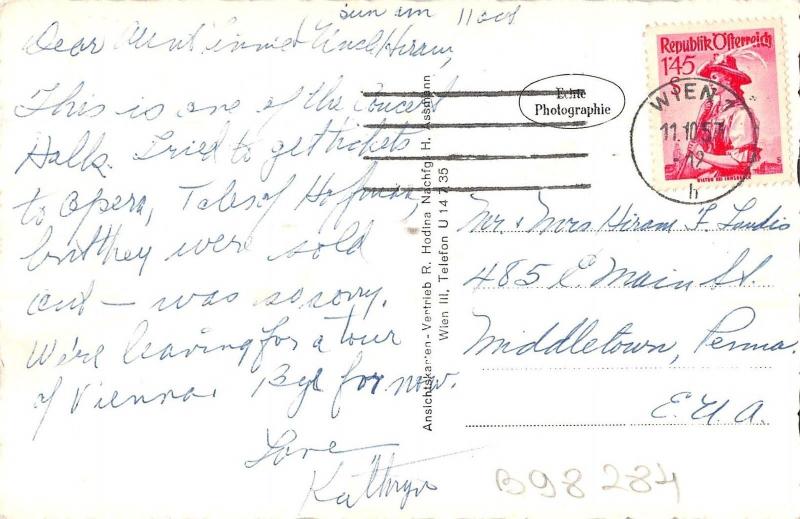 Sun am 11 oct
Dear Aunt Annie & Uncle Hiram,
This is one of the Concert
Halls. Tried to get tickets
to Opera, Tales of Hoffman,
but they were sold
out – was so sorry.
We're leaving for a tour
of Vienna. Bye for now.
Love
Kathryn
Ansichtskarten-Vertrieb R. Hodina Nachfg. H. Assmann
Wien III, Telefon U 14 7 35
Echte
Photographie
Republik Österreich
1'45
S
WIEN 1
11.10.57
-12
h
Mr. & Mrs Hiram F. Landis
485 E. Main St.
Middletown, Penna.
E. U. A.
B98284